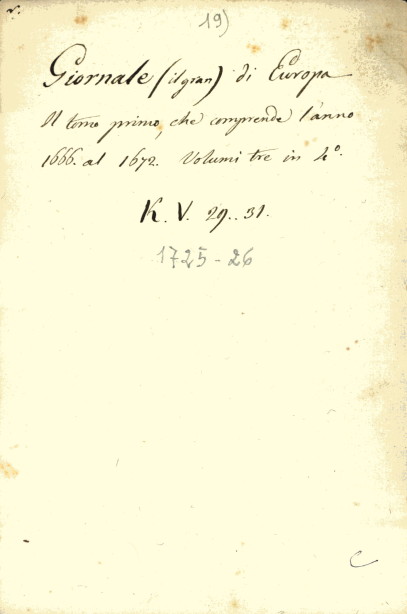 19)
Giornale (il gran) di Europa
Il tomo primo, che comprende l'anno
1666. al 1672. Volumi tre in 4º.
K. V. 29..31.
1725-26